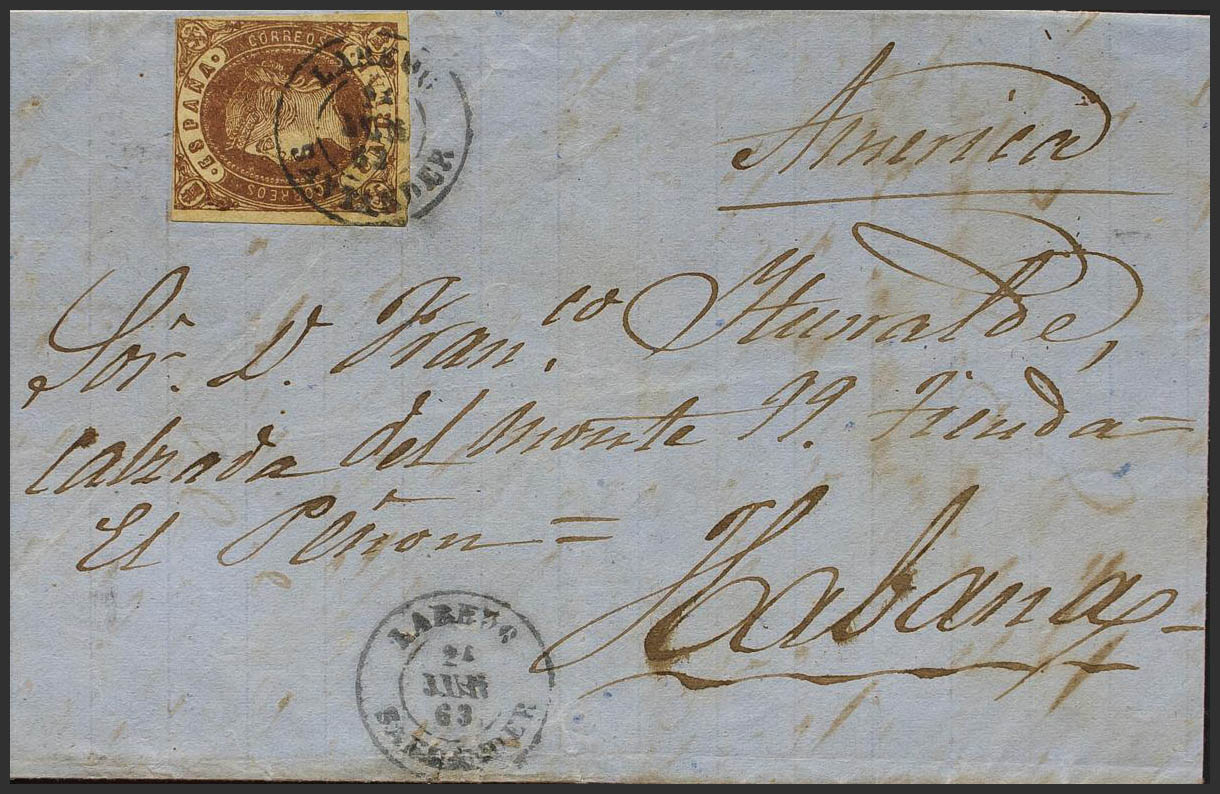 CORREOS
ESPAÑA
CORREOS
LAREDO
SANTANDER
America
Sor. D. Franco. Iturralde,
calzada del Monte 99. tienda=
El Peñon =
Habana
LAREDO
24
JUN
63
SANTANDER